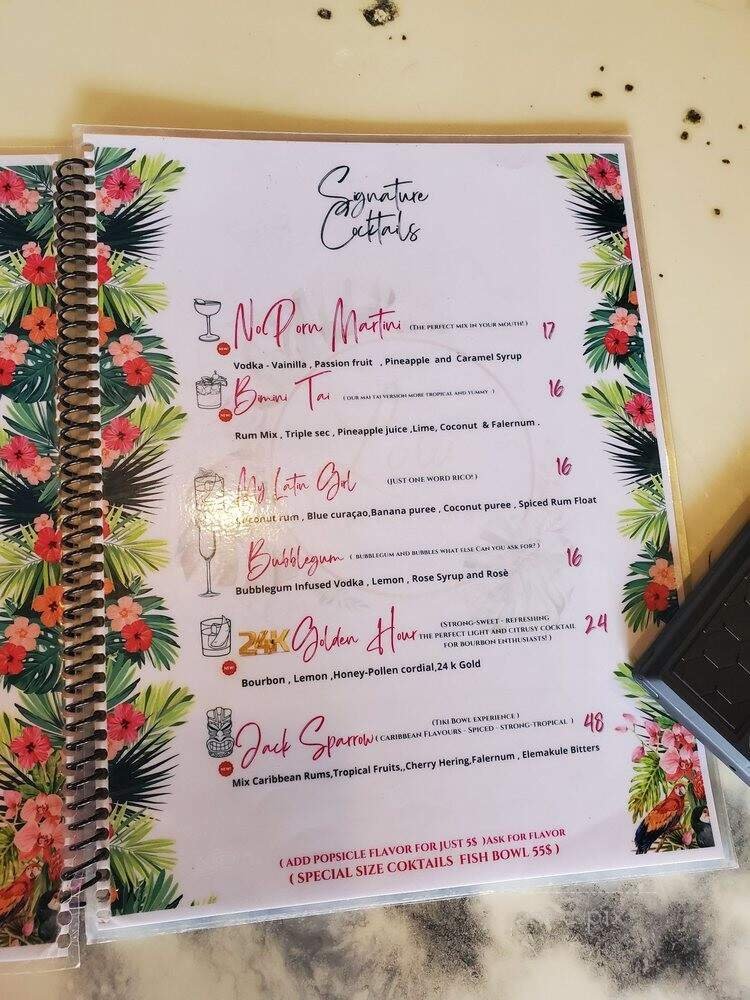 Signature
Cocktails
No Porn Martini (The perfect mix in your mouth! ) 17
NEW!
Vodka - Vainilla , Passion fruit , Pineapple and Caramel Syrup
Bimini Tai ( our mai tai version more tropical and yummy ) 16
NEW!
Rum Mix , Triple sec , Pineapple juice ,Lime, Coconut & Falernum .
My Latin Girl (Just one word Rico! ) 16
Coconut rum , Blue curaçao,Banana puree , Coconut puree , Spiced Rum Float
Bubblegum ( bubblegum and bubbles what else Can you ask for? ) 16
Bubblegum Infused Vodka , Lemon , Rose Syrup and Rosè
24K Golden Hour (Strong-sweet - refreshing
the perfect light and citrusy cocktail
for bourbon enthusiasts! ) 24
NEW!
Bourbon , Lemon ,Honey-Pollen cordial,24 k Gold
Jack Sparrow (Tiki Bowl experience )
( Caribbean Flavours - Spiced - strong-tropical ) 48
NEW!
Mix Caribbean Rums,Tropical Fruits,,Cherry Hering,Falernum , Elemakule Bitters
( ADD POPSICLE FLAVOR FOR JUST 5$ )ASK FOR FLAVOR
( SPECIAL SIZE COKTAILS FISH BOWL 55$ )